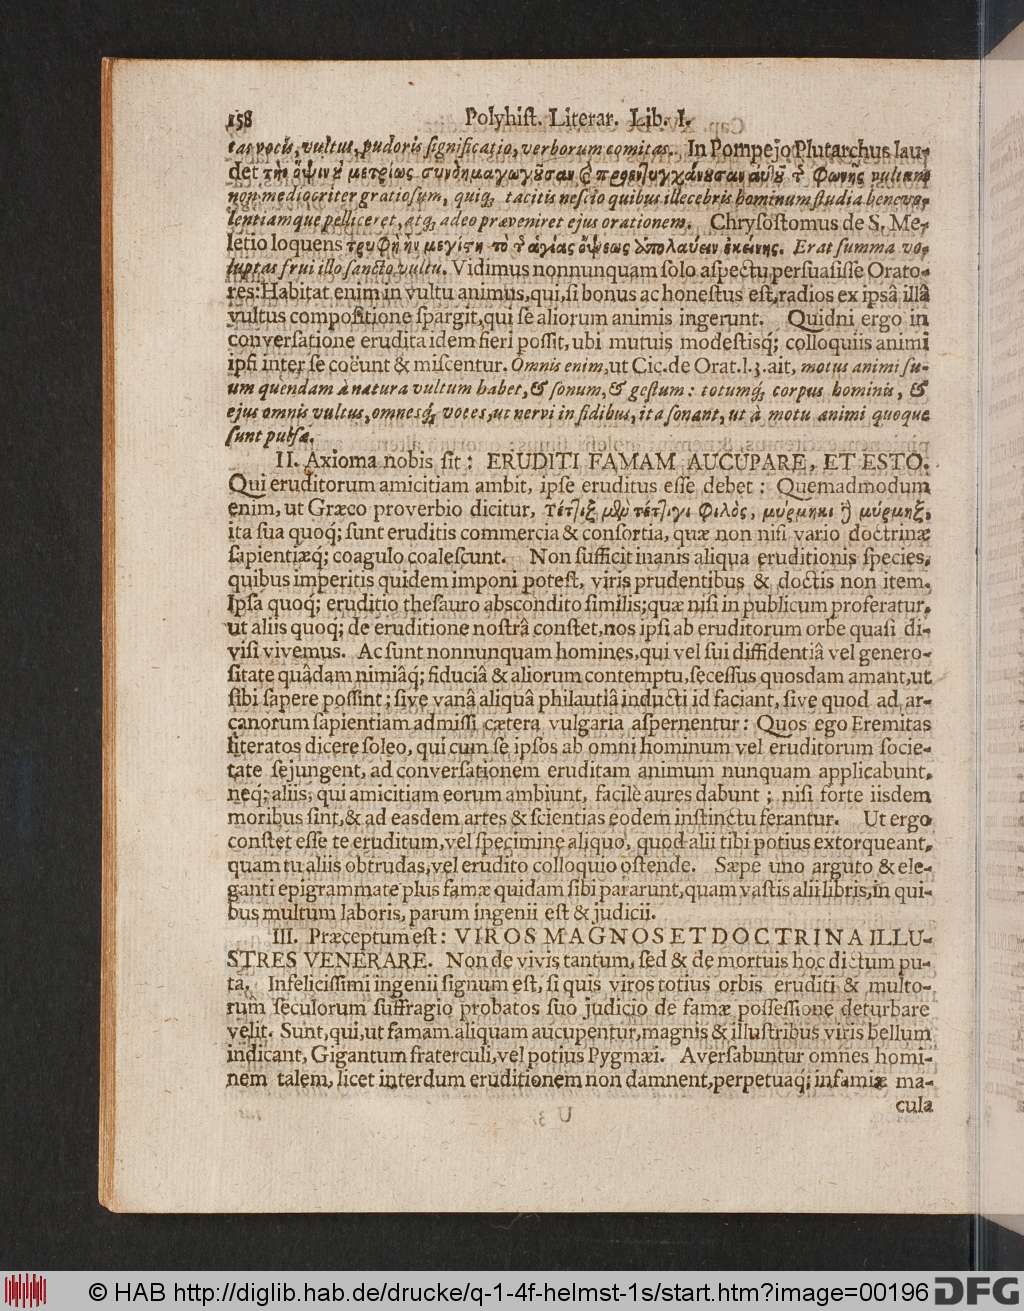 158 Polyhiſt. Literar. Lib. I.
tas vocis, vultus, pudoris ſignificatio, verborum comitas. In Pompejo Plutarchus lau-
det τὴν ὄψιν μετρίως συνδημαγωγοῦσαν καὶ προεντυγχάνουσαν αὐτοῦ τ φωνῆς vultum
non mediocriter gratioſum, quiq́; tacitis neſcio quibus illecebris hominum ſtudia benevo-
lentiamque pelliceret, atq́; adeo præveniret ejus orationem. Chryſoſtomus de S. Me-
letio loquens τρυφὴ ἦν μεγίςη τὸ τ ἁγίας ὄψεως ἀπολαύειν ἐκείνης. Erat ſumma vo-
luptas frui illo ſancto vultu. Vidimus nonnunquam ſolo aſpectu perſuaſiſſe Orato-
res: Habitat enim in vultu animus, qui, ſi bonus ac honeſtus eſt, radios ex ipsâ illâ
vultus compoſitione ſpargit, qui ſe aliorum animis ingerunt. Quidni ergo in
converſatione erudita idem fieri poſſit, ubi mutuis modeſtisq́; colloquiis animi
ipſi inter ſe coëunt & miſcentur. Omnis enim, ut Cic. de Orat. l. 3. ait, motus animi ſu-
um quendam à natura vultum habet, & ſonum, & geſtum: totumq́; corpus hominis, &
ejus omnis vultus, omnesq́; voces, ut nervi in fidibus, ita ſonant, ut à motu animi quoque
ſunt pulſæ.
II. Axioma nobis ſit: ERUDITI FAMAM AUCUPARE, ET ESTO.
Qui eruditorum amicitiam ambit, ipſe eruditus eſſe debet: Quemadmodum
enim, ut Græco proverbio dicitur, Τέτλιξ μὲν τέτλιγι φιλὸς, μύρμηκι ἢ μύρμηξ,
ita ſua quoq́; ſunt eruditis commercia & conſortia, quæ non niſi vario doctrinæ
ſapientiæq́; coagulo coaleſcunt. Non ſufficit inanis aliqua eruditionis ſpecies,
quibus imperitis quidem imponi poteſt, viris prudentibus & doctis non item.
Ipſa quoq́; eruditio theſauro abſcondito ſimilis; quæ niſi in publicum proferatur,
ut aliis quoq́; de eruditione noſtrâ conſtet, nos ipſi ab eruditorum orbe quaſi di-
viſi vivemus. Ac ſunt nonnunquam homines, qui vel ſui diffidentiâ vel genero-
ſitate quâdam nimiâq́; fiduciâ & aliorum contemptu, ſeceſſus quosdam amant, ut
ſibi ſapere poſſint; ſive vanâ aliquâ philautiâ inducti id faciant, ſive quod ad ar-
canorum ſapientiam admiſſi cætera vulgaria aſpernentur: Quos ego Eremitas
literatos dicere ſoleo, qui cum ſe ipſos ab omni hominum vel eruditorum ſocie-
tate ſejungent, ad converſationem eruditam animum nunquam applicabunt,
neq́; aliis, qui amicitiam eorum ambiunt, facilè aures dabunt; niſi forte iisdem
moribus ſint, & ad easdem artes & ſcientias eodem inſtinctu ferantur. Ut ergo
conſtet eſſe te eruditum, vel ſpecimine aliquo, quod alii tibi potius extorqueant,
quam tu aliis obtrudas, vel erudito colloquio oſtende. Sæpe uno arguto & ele-
ganti epigrammate plus famæ quidam ſibi pararunt, quam vaſtis alii libris, in qui-
bus multum laboris, parum ingenii eſt & judicii.
III. Præceptum eſt: VIROS MAGNOS ET DOCTRINA ILLU-
STRES VENERARE. Non de vivis tantum, ſed & de mortuis hoc dictum pu-
ta. Infeliciſſimi ingenii ſignum eſt, ſi quis viros totius orbis eruditi & multo-
rum ſeculorum ſuffragio probatos ſuo judicio de famæ poſſeſſione deturbare
velit. Sunt, qui, ut famam aliquam aucupentur, magnis & illuſtribus viris bellum
indicant, Gigantum fraterculi, vel potius Pygmæi. Averſabuntur omnes homi-
nem talem, licet interdum eruditionem non damnent, perpetuaq́; infamiæ ma-
cula
© HAB http://diglib.hab.de/drucke/q-1-4f-helmst-1s/start.htm?image=00196 DFG